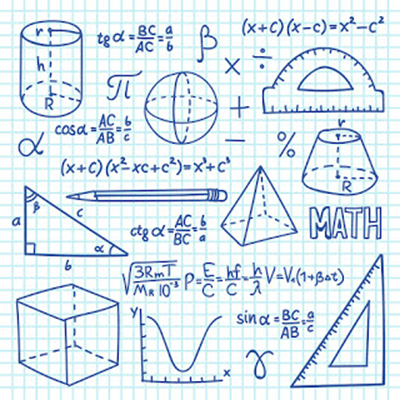 r
h
R
tg α = BC/AC = a/b
β
(x+c)(x-c) = x²-c²
π
×
÷
+
α
cos α = AC/AB = b/c
−
%
r
R
(x+c)(x²-xc+c²) = x³+c³
β
a
c
α
b
ctg α = AC/BC = b/a
MATH
√3RmT/MR10⁻³
P = E/C = hf/C = h/λ
V = V₀(1+βΔt)
y
x
sin α = BC/AB = a/c
γ